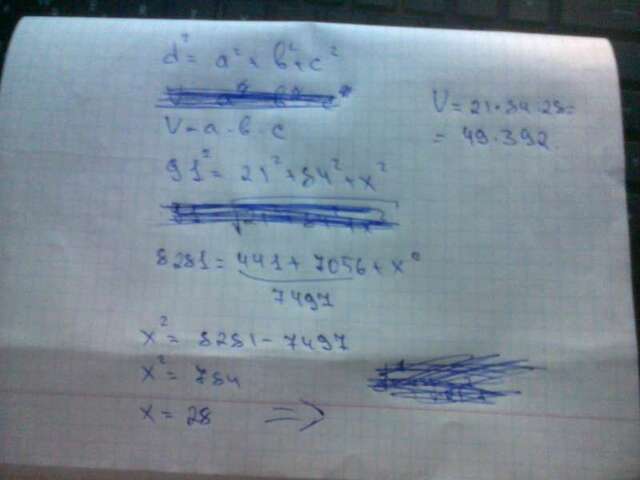 d² = a² + b² + c²
V = a · b · c
91² = 21² + 84² + x²
8281 = 441 + 7056 + x²
7497
x² = 8281 - 7497
x² = 784
x = 28 =>
V = 21 · 84 · 28 =
= 49.392